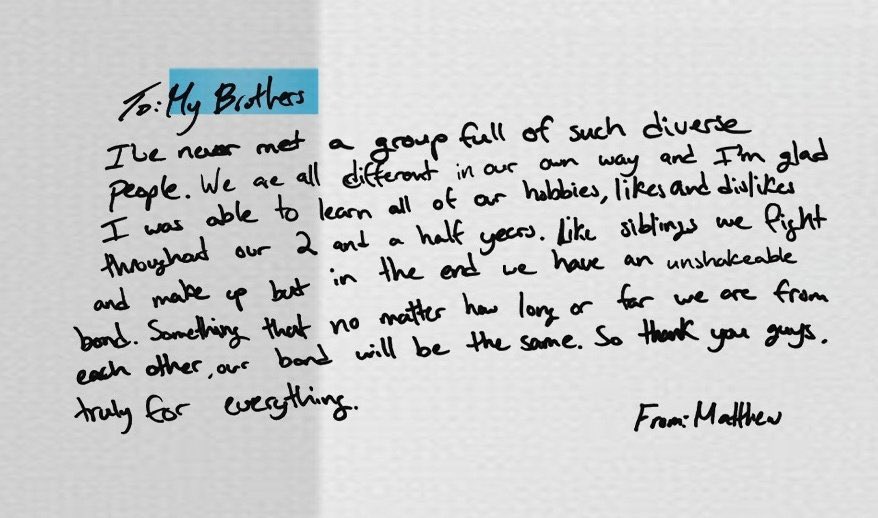 To: My Brothers
I've never met a group full of such diverse
people. We are all different in our own way and I'm glad
I was able to learn all of our hobbies, likes and dislikes
throughout our 2 and a half years. Like siblings we fight
and make up but in the end we have an unshakeable
bond. Something that no matter how long or far we are from
each other, our bond will be the same. So thank you guys.
truly for everything.
From: Matthew